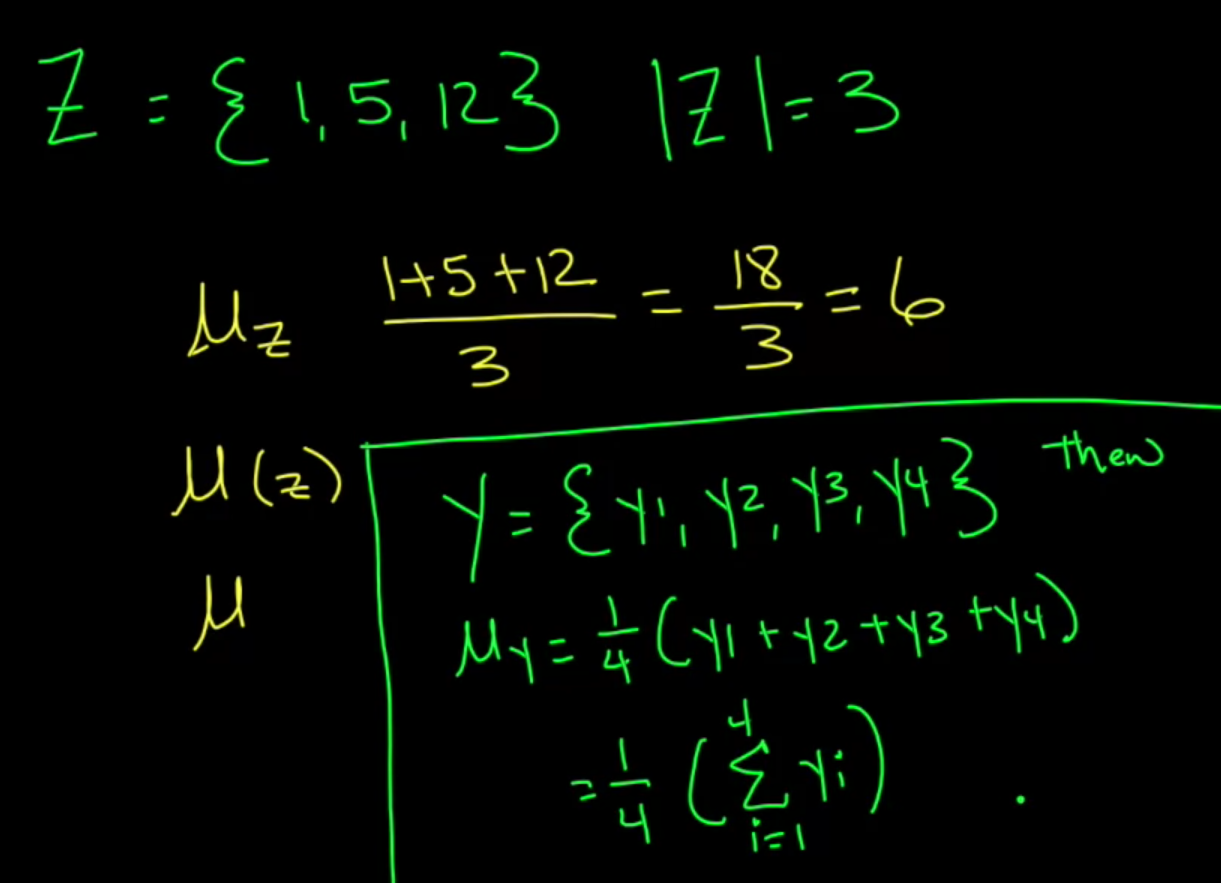 Z = {1, 5, 12} |Z| = 3
μ_Z (1+5+12)/3 = 18/3 = 6
μ(z)
μ
Y = {y1, y2, y3, y4} then
μ_Y = 1/4 (y1 + y2 + y3 + y4)
= 1/4 (∑_{i=1}^{4} yi)